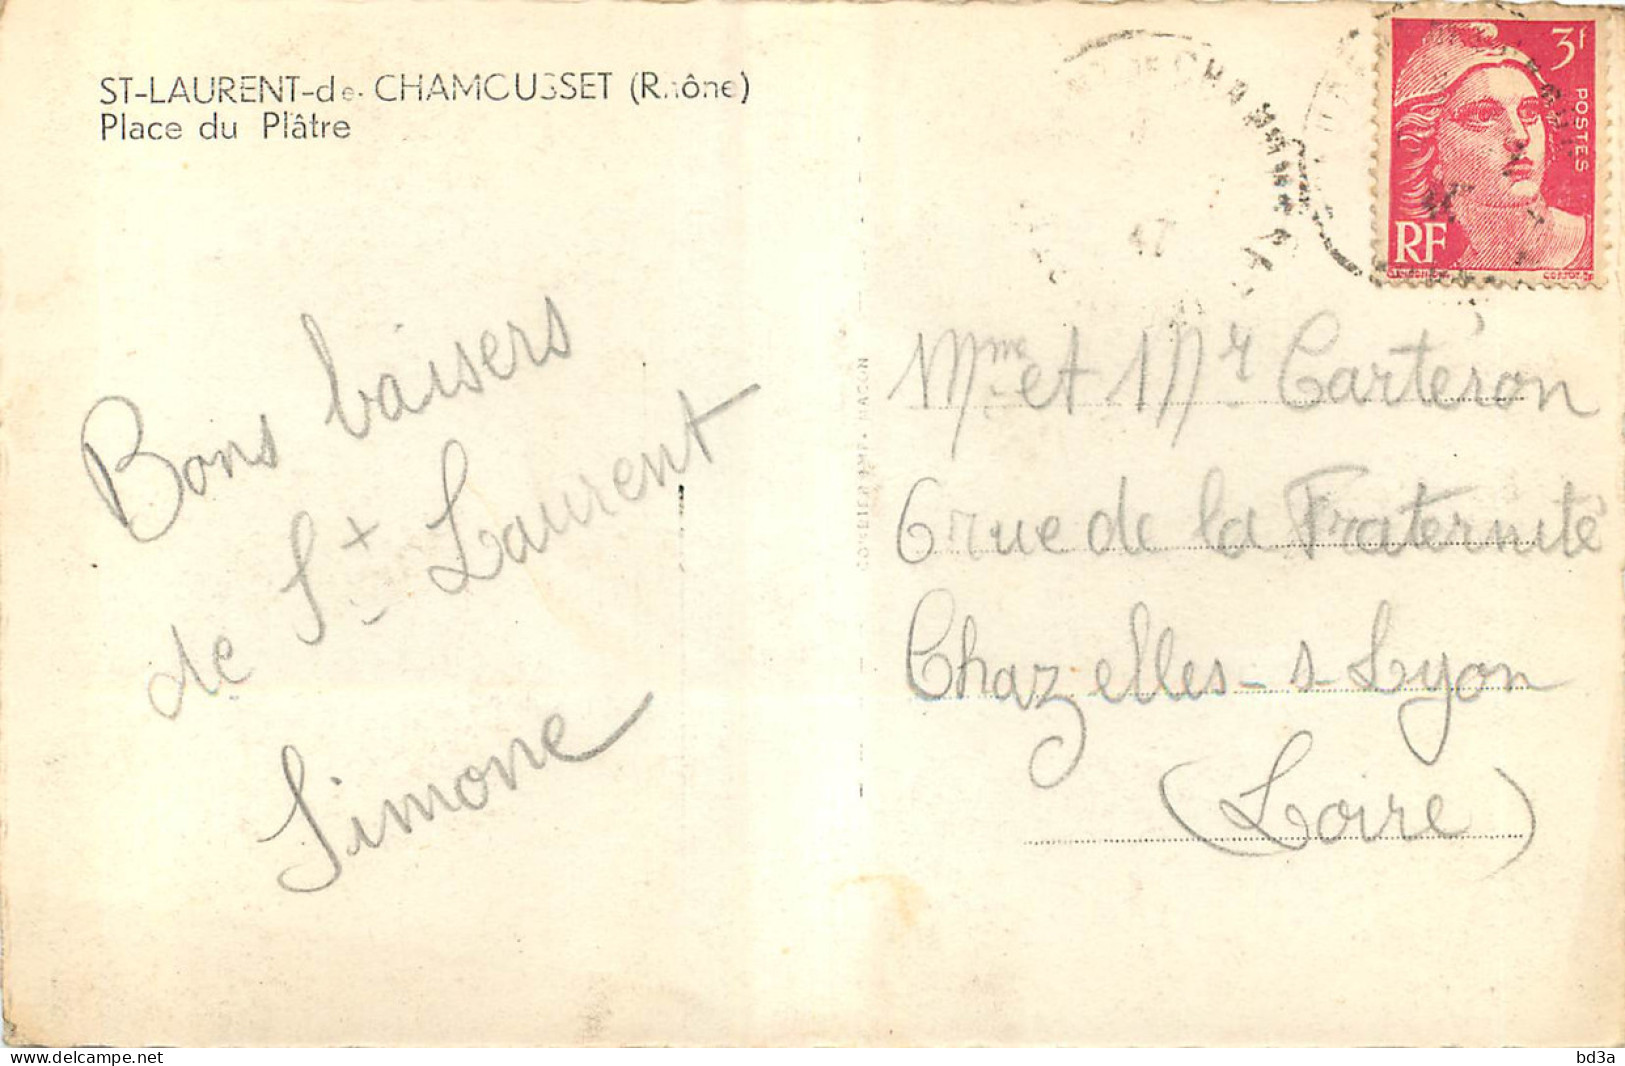 ST-LAURENT-de-CHAMOUSSET (Rhône)
Place du Plâtre
Bons baisers
de St Laurent
Simone
3f
POSTES
RF
DE CHAM
47
COMBIER IMP. MACON
Mme et Mr Carteron
6 rue de la Fraternité
Chazelles-s-Lyon
(Loire)
www.delcampe.net
bd3a